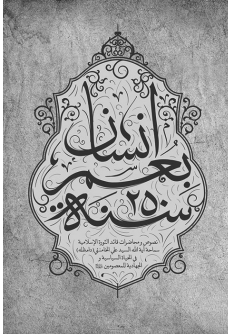 إنسان
بعمر
٢٥٠
سنة
نصوص ومحاضرات قائد الثورة الإسلامية
سماحة آية الله السيد علي الخامنئي (دام ظله)
في الحياة السياسية و
الجهادية للمعصومين